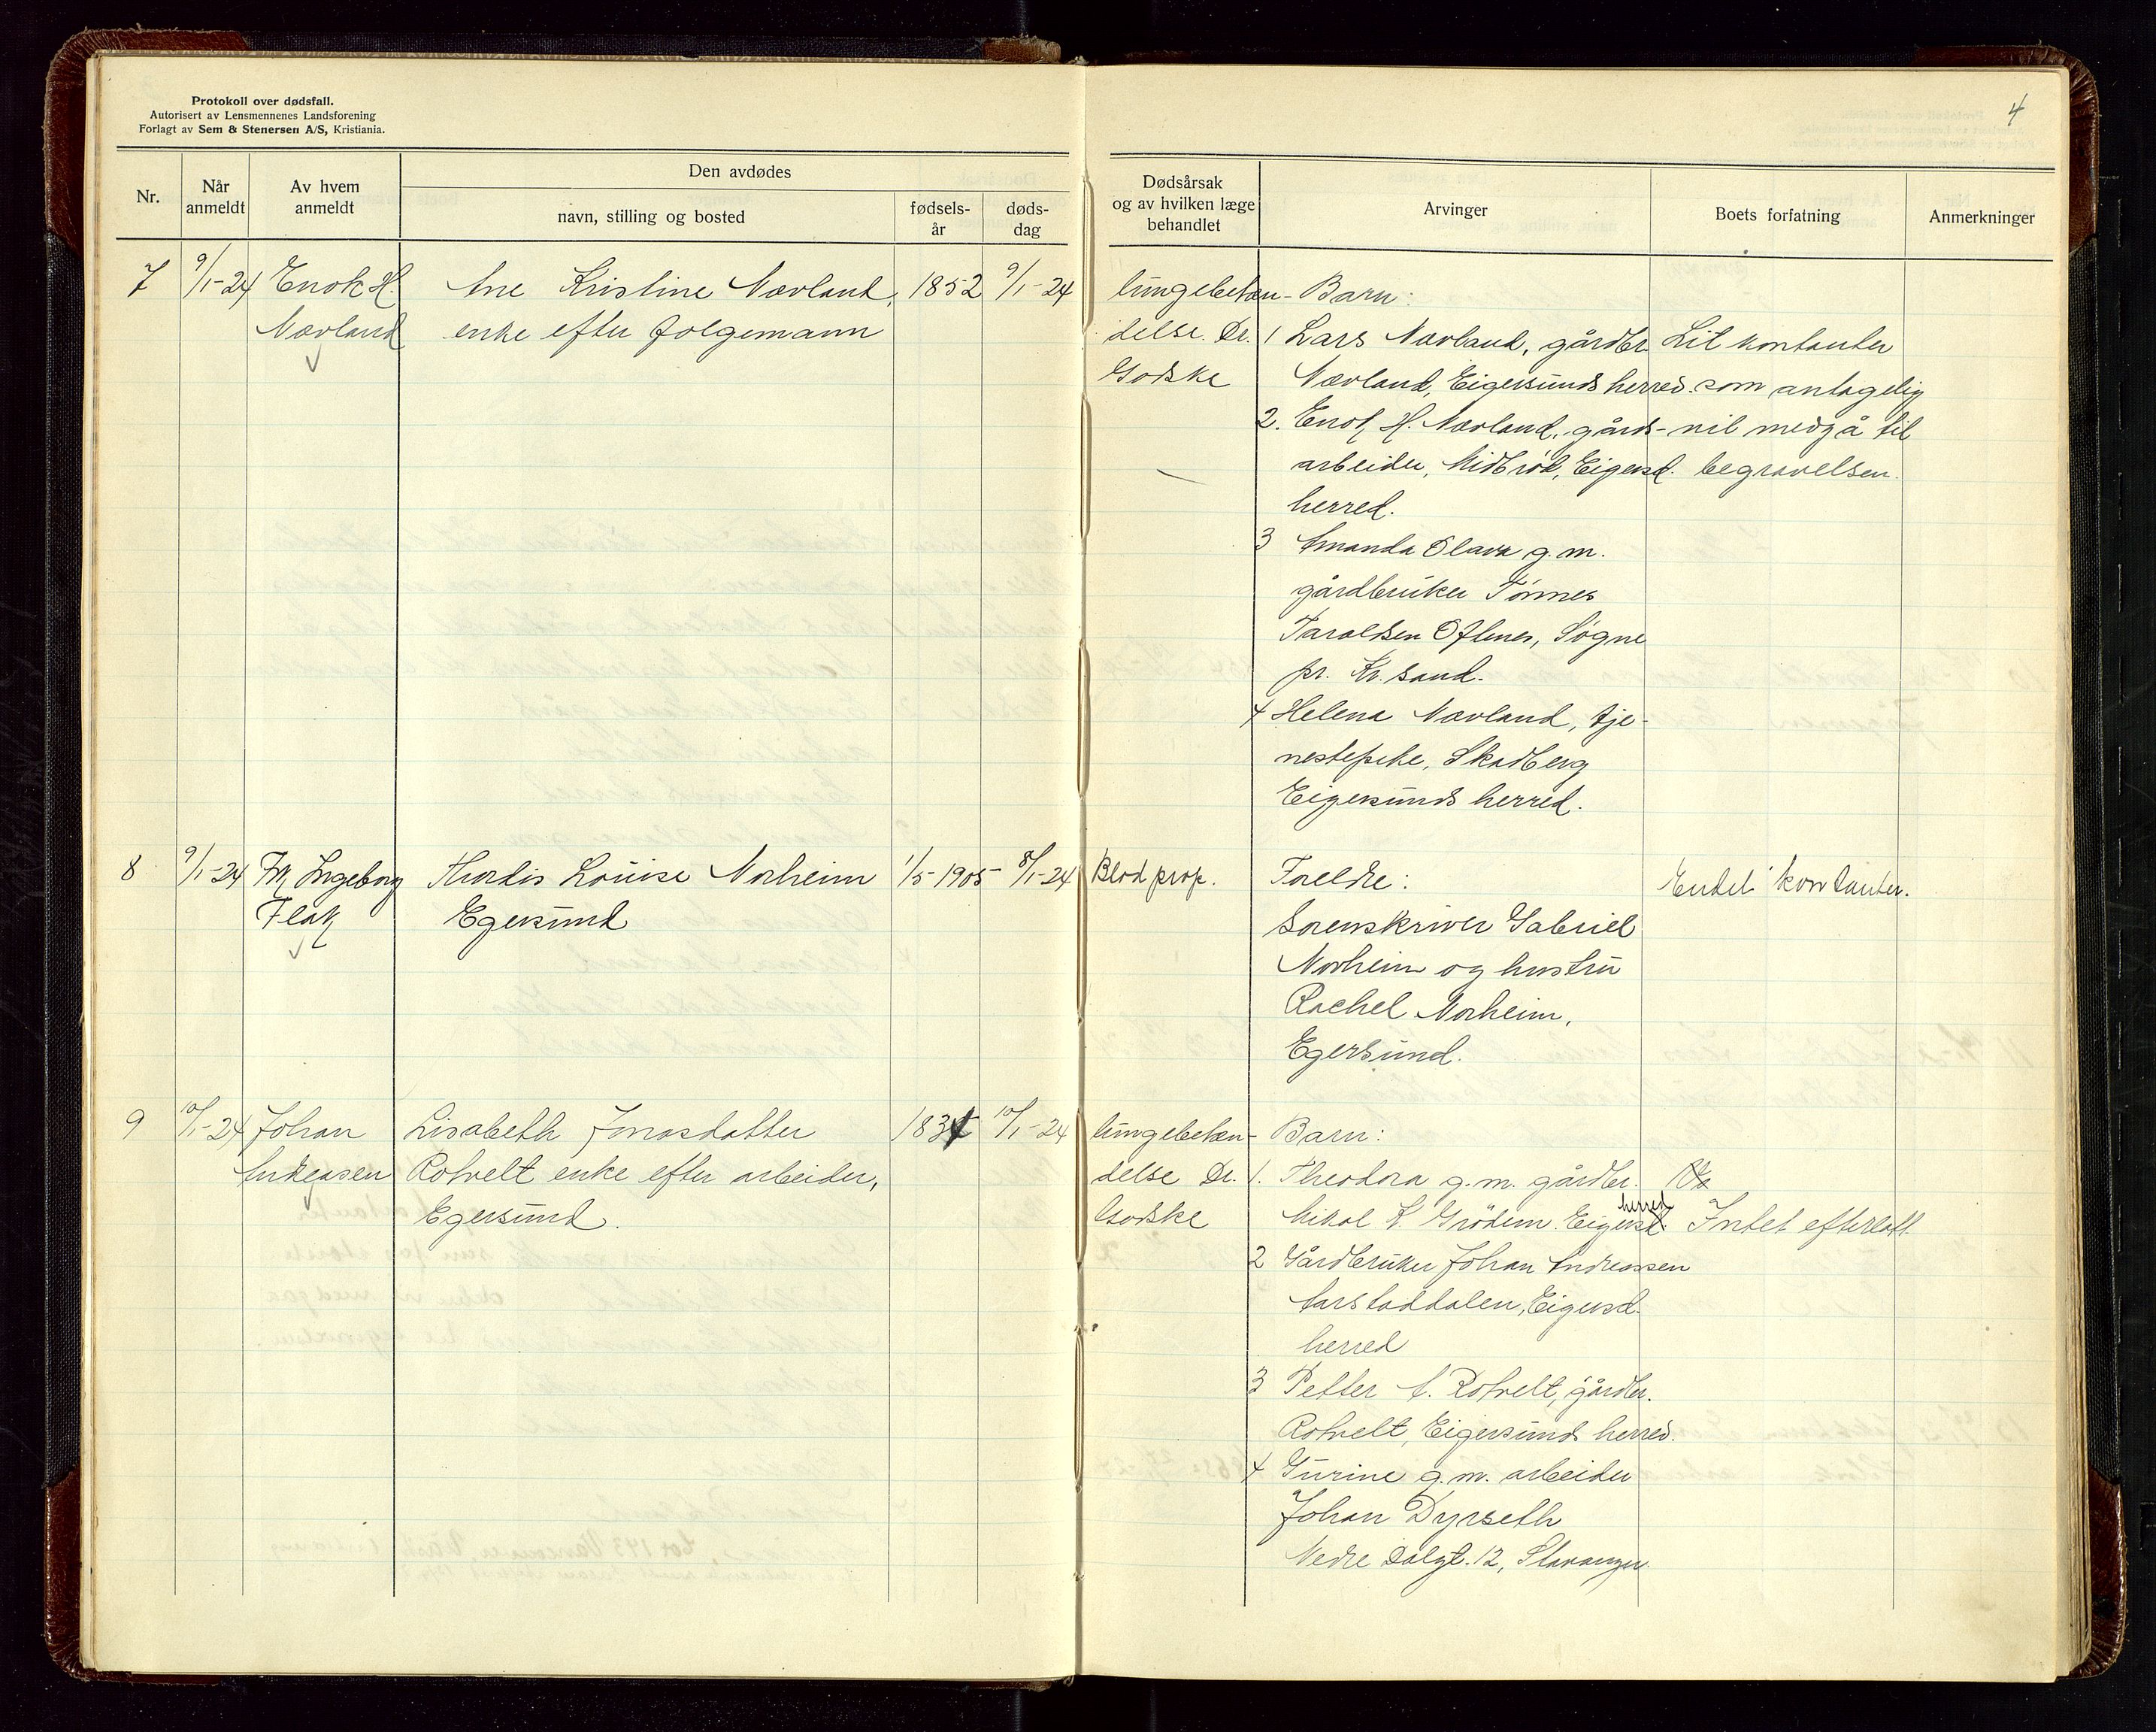 Protokoll over dødsfall.
Autorisert av Lensmennenes Landsforening
Forlagt av Sem & Stenersen A/S, Kristiania.
4
Nr.
Når anmeldt
Av hvem anmeldt
Den avdødes
navn, stilling og bosted
fødsels-år
døds-dag
Dødsårsak og av hvilken læge behandlet
Arvinger
Boets forfatning
Anmerkninger
7
9/1-24
Enok H.
Nævland
Ane Kristine Nævland,
enke efter folgemann
1852
9/1-24
lungebeten-
delse. Dr.
Godske
Barn:
1 Lars Nævland, gårdbr.
Nævland, Eigersunds herred.
2. Enok H. Nævland, gårds-
arbeider, Midbrød, Eigersd.
herred.
3 Amanda Olava g. m.
gårdbruker Tønnes
Taraldsen Oftenes, Søgne
pr. Kr. sand.
4 Helena Nævland, tje-
nestepike, Skadberg
Eigersunds herred.
Lit kontanter
som antagelig
vil medgå til
begravelsen.
8
9/1-24
Frk Ingeborg
Flak
Thordis Louise Norheim
Egersund
1/5-1905
8/1-24
Blod prop.
Foreldre:
Sorenskriver Gabriel
Norheim og hustru
Rachel Norheim,
Egersund.
Endel kontanter.
9
10/1-24
Johan
Andreasen
Lisabeth Jonasdatter
Rotvelt enke efter arbeider,
Egersund.
1834
10/1-24
lungebeten-
delse Dr.
Godske
Barn:
1. Theodora g. m. gårdbr.
Mikal K. Grødem. Eigersd. herred
2 Gårdbruker Johan Andreassen
Aarstaddalen, Eigersd.
herred
3 Petter A. Rotvelt, gårdbr.
Rotvelt, Eigersunds herred.
4 Gurine g. m. arbeider
Johan Dyrseth
Nedre Dalgt. 12, Stavanger.
Intet efterlatt.